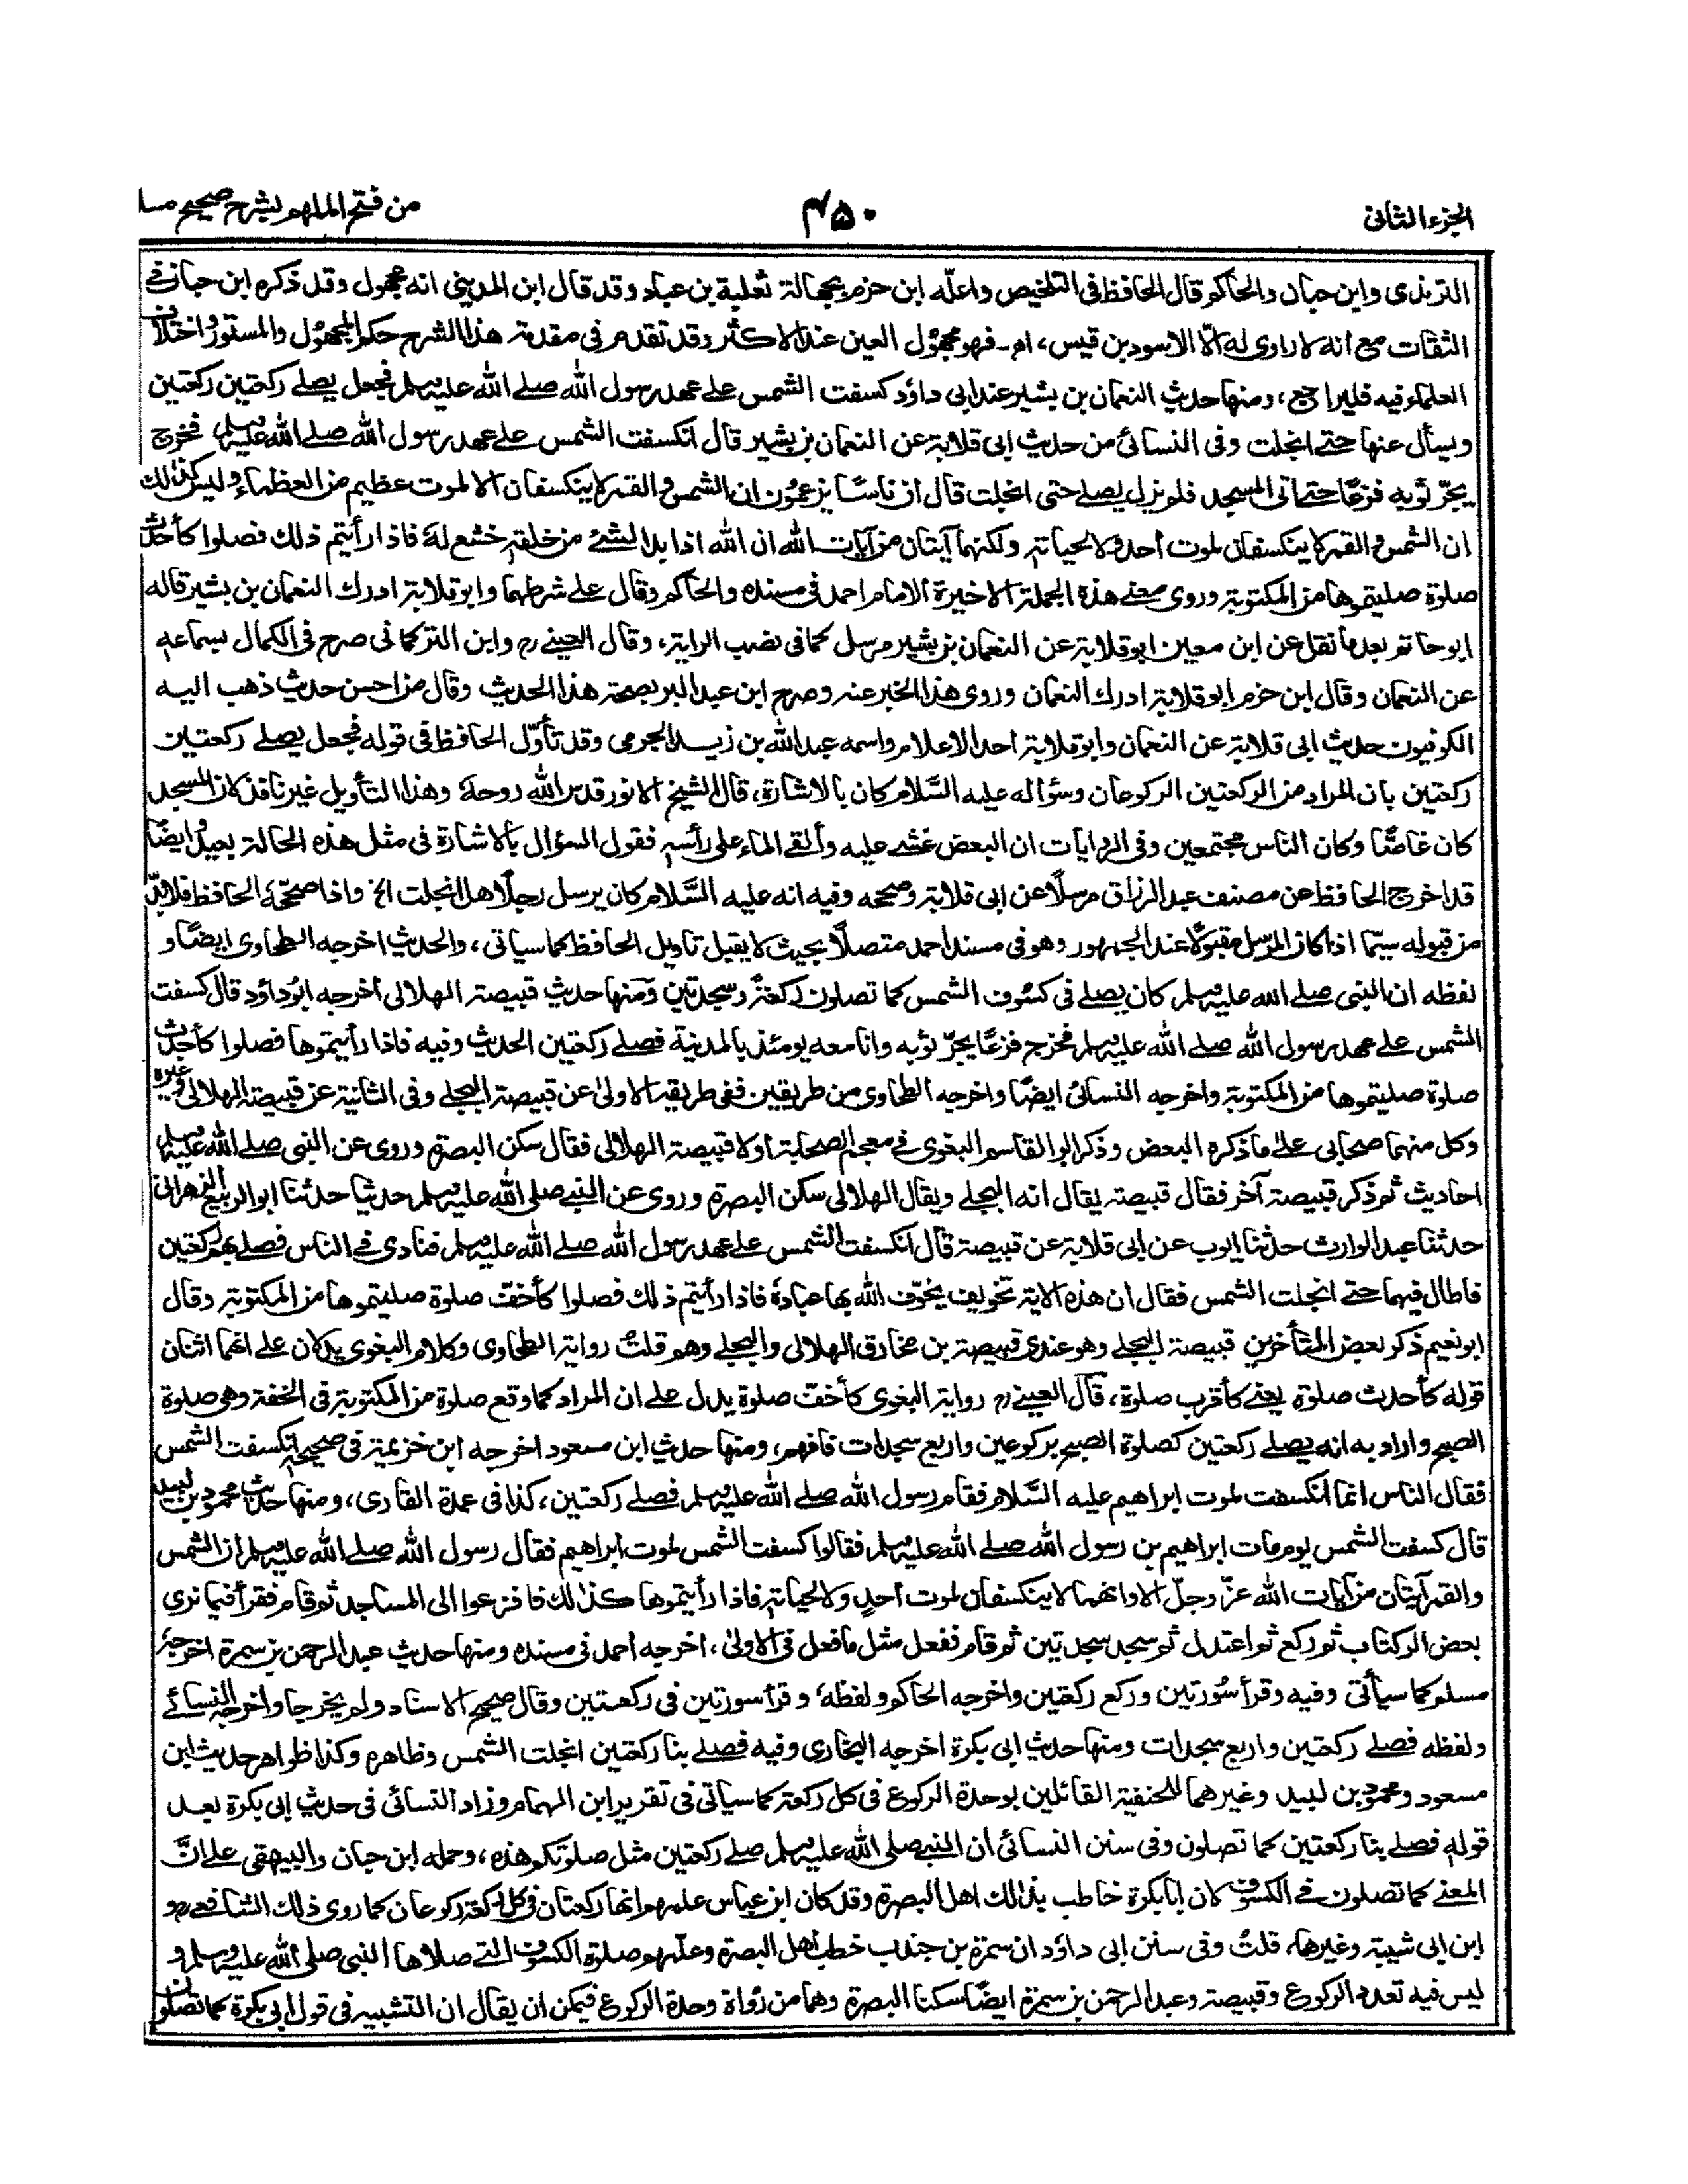 الجزء الثانى
۴۵۰
من فتح الملهم بشرح صحيح مسلـ
الترمذى وابن حبان والحاكم قال الحافظ فى التلخيص واعلّه ابن حزم بجهالة ثعلبة بن عباد وقد قال ابن المدينى انه مجهول وقد ذكره ابن حبان فى
الثقات مع انه لا راوى له الّا الاسود بن قيس، اھ۔ فهو مجهول العين عند الاكثر وقد تقدم فى مقدمة هذا الشرح حكم المجهول والمستور واختلاف
العلماء فيه فليراجع، ومنها حديث النعمان بن بشير عند ابى داؤد كسفت الشمس على عهد رسول الله صلى الله عليه وسلم فجعل يصلى ركعتين ركعتين
ويسأل عنها حتى انجلت وفى النسائى من حديث ابى قلابة عن النعمان بن بشير قال انكسفت الشمس على عهد رسول الله صلى الله عليه وسلم فخرج
يجرّ ثوبه فزعًا حتى اتى المسجد فلم يزل يصلى حتى انجلت قال ان ناسًا يزعمون ان الشمس والقمر لا ينكسفان الا لموت عظيم من العظماء وليس كذلك
ان الشمس والقمر لا ينكسفان لموت أحد ولا لحياته ولكنهما آيتان من آيات الله ان الله اذا بدا لشئ من خلقه خشع له فاذا رأيتم ذلك فصلوا كأحدث
صلوة صليتموها من المكتوبة وروى معنى هذه الجملة الاخيرة الامام احمد فى مسنده والحاكم وقال على شرطهما وابو قلابة ادرك النعمان بن بشير قاله
ابو حاتم بعد ما نقل عن ابن معين ابو قلابة عن النعمان بن بشير مرسل كما فى نصب الراية، وقال العينى رح وابن التركمانى صرح فى الكمال بسماعه
عن النعمان وقال ابن حزم ابو قلابة ادرك النعمان وروى هذا الخبر عنه وصرح ابن عبد البر بصحة هذا الحديث وقال من احسن حديث ذهب اليه
الكوفيون حديث ابى قلابة عن النعمان وابو قلابة احد الاعلام واسمه عبد الله بن زيد الجرمى وقد تأوّل الحافظ فى قوله فجعل يصلى ركعتين
ركعتين بان المراد من الركعتين الركوعان وسؤاله عليه السّلام كان بالاشارة، قال الشيخ الانور قدس الله روحه وهذا التأويل غير نافذ لان المسجد
كان غاصًّا وكان الناس مجتمعين وفى الروايات ان البعض غشى عليه وألقى الماء على رأسه فقول السؤال بالاشارة فى مثل هذه الحالة بعيد وايضًا
قد اخرج الحافظ عن مصنف عبد الرزاق مرسلًا عن ابى قلابة وصححه وفيه انه عليه السّلام كان يرسل رجلًا هل انجلت الخ واذا صحّحه الحافظ فلا بدّ
من قبوله سيّما اذا كان المرسل مقبولًا عند الجمهور وهو فى مسند احمد متصلًا بحيث لا يقبل تاويل الحافظ كما سياتى، والحديث اخرجه الطحاوى ايضًا و
لفظه ان النبى صلى الله عليه وسلم كان يصلى فى كسوف الشمس كما تصلون ركعة وسجدتين ومنها حديث قبيصة الهلالى أخرجه ابوداؤد قال كسفت
الشمس على عهد رسول الله صلى الله عليه وسلم فخرج فزعًا يجرّ ثوبه وانا معه يومئذ بالمدينة فصلى ركعتين الحديث وفيه فاذا رأيتموها فصلوا كأحدث
صلوة صليتموها من المكتوبة واخرجه النسائى ايضًا واخرجه الطحاوى من طريقين ففى طريقه الاولى عن قبيصة البجلى وفى الثانية عن قبيصة الهلالى وغيره
وكل منهما صحابى على ما ذكره البعض وذكر ابو القاسم البغوى فى معجم الصحابة اولا قبيصة الهلالى فقال سكن البصرة وروى عن النبى صلى الله عليه وسلم
احاديث ثم ذكر قبيصة آخر فقال قبيصة يقال انه البجلى ويقال الهلالى سكن البصرة وروى عن النبى صلى الله عليه وسلم حديثا حدثنا ابو الربيع الزهرانى
حدثنا عبد الوارث حدثنا ايوب عن ابى قلابة عن قبيصة قال انكسفت الشمس على عهد رسول الله صلى الله عليه وسلم فنادى فى الناس فصلى بهم ركعتين
فاطال فيهما حتى انجلت الشمس فقال ان هذه الاية تخويف يخوّف الله بها عباده فاذا رأيتم ذلك فصلوا كأخفّ صلوة صليتموها من المكتوبة وقال
ابو نعيم ذكر بعض المتأخرين قبيصة البجلى وهو عندى قبيصة بن مخارق الهلالى والبجلى وهم قلتُ رواية الطحاوى وكلام البغوى يدلان على انهما اثنان
قوله كأحدث صلوة يعنى كأقرب صلوة، قال العينى رح رواية البغوى كأخفّ صلوة يدل على ان المراد كما وقع صلوة من المكتوبة فى الخفة وهى صلوة
الصبح واراد به انه يصلى ركعتين كصلوة الصبح بركوعين واربع سجدات فافهم، ومنها حديث ابن مسعود اخرجه ابن خزيمة فى صحيحه انكسفت الشمس
فقال الناس انما انكسفت لموت ابراهيم عليه السّلام فقام رسول الله صلى الله عليه وسلم فصلى ركعتين، كذا فى عمدة القارى، ومنها حديث محمود بن لبيد
قال كسفت الشمس يوم مات ابراهيم بن رسول الله صلى الله عليه وسلم فقالوا كسفت الشمس لموت ابراهيم فقال رسول الله صلى الله عليه وسلم ان الشمس
والقمر آيتان من آيات الله عزّ وجلّ الا وانهما لا ينكسفان لموت أحدٍ ولا لحياته فاذا رأيتموها كذلك فافزعوا الى المساجد ثم قام فقرأ فيما نرى
بعض الركتاب ثم ركع ثم اعتدل ثم سجد سجدتين ثم قام ففعل مثل ما فعل فى الاولى، اخرجه احمد فى مسنده ومنها حديث عبد الرحمن بن سمرة اخرجه
مسلم كما سيأتى وفيه وقرأ سُورتين وركع ركعتين واخرجه الحاكم ولفظه، وقرأ سورتين فى ركعتين وقال صحيح الاسناد ولم يخرجا واخرجه النسائى
ولفظه فصلى ركعتين واربع سجدات ومنها حديث ابى بكرة اخرجه البخارى وفيه فصلى بنا ركعتين انجلت الشمس وظاهره وكذا ظواهر حديث ابن
مسعود ومحمود بن لبيد وغيرهما للحنفية القائلين بوحدة الركوع فى كل ركعة كما سياتى فى تقرير ابن الهمام وزاد النسائى فى حديث ابى بكرة بعد
قوله فصلى بنا ركعتين كما تصلون وفى سنن النسائى ان النبى صلى الله عليه وسلم صلى ركعتين مثل صلوتكم هذه، وحمله ابن حبان والبيهقى على انّ
المعنى كما تصلون فى الكسوف لان ابا بكرة خاطب بذلك اهل البصرة وقد كان ابن عباس علمهم انها ركعتان فى كل ركعة ركوعان كما روى ذلك الشافعى رح و
ابن ابى شيبة وغيرها، قلتُ وفى سنن ابى داؤد ان سمرة بن جندب خطب اهل البصرة وعلّمهم صلوة الكسوف التى صلاها النبى صلى الله عليه وسلم و
ليس فيه تعدد الركوع وقبيصة وعبد الرحمن بن سمرة ايضًا سكنا البصرة وهما من رُواة وحدة الركوع فيمكن ان يقال ان التشبيه فى قول ابى بكرة كما تصلون